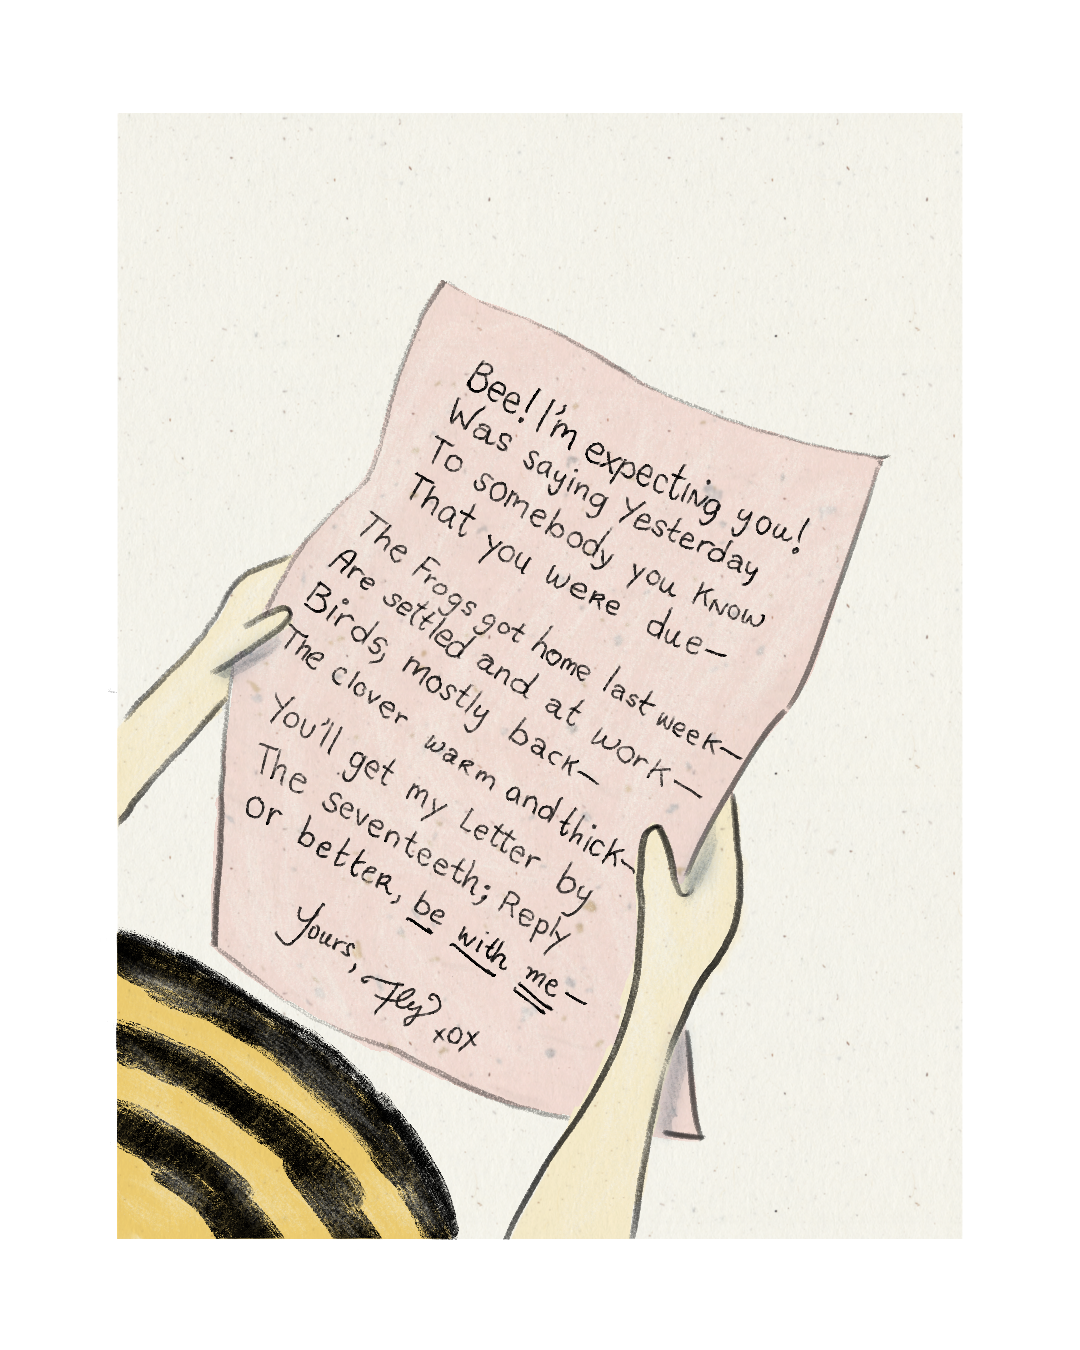 Bee! I'm expecting you!
Was saying Yesterday
To somebody you know
That you were due—
The Frogs got home last week—
Are settled and at work—
Birds, mostly back—
The clover warm and thick—
You'll get my Letter by
The seventeeth; Reply
Or better, be with me—
Yours, Fly
xox